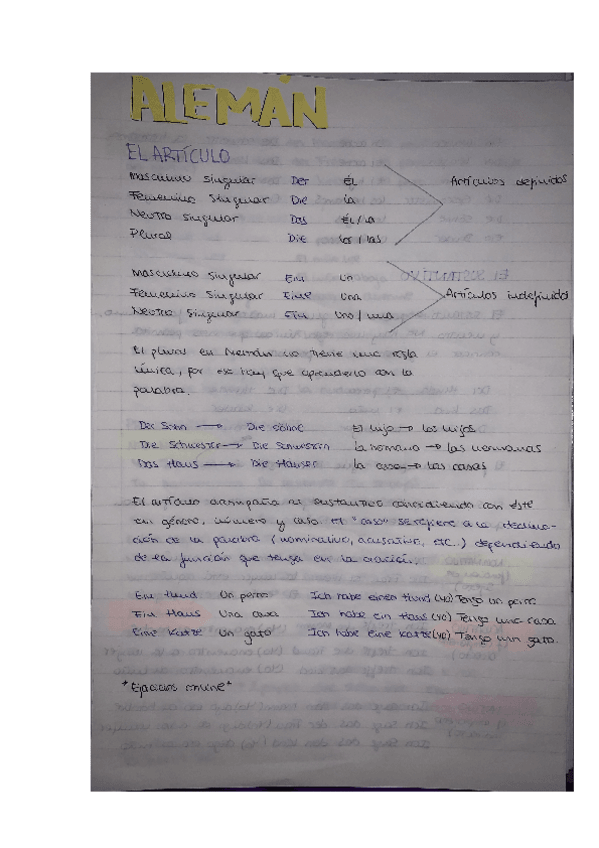 ALEMÁN
EL ARTÍCULO
Masculino Singular Der Él
Femenino Singular Die la
Neutro Singular Das Él/la
Plural Die los/las
Artículos definidos
Masculino Singular Ein Un
Femenino Singular Eine Una
Neutro Singular Ein Uno/una
Artículos indefinidos
El plural en Alemán no tiene una regla
única, por eso hay que aprenderlo con la
palabra.
Der Sohn → Die Söhne El hijo → los hijos
Die Schwester → Die Schwestern la hermana → las hermanas
Das Haus → Die Häuser la casa → las casas
El artículo acompaña al sustantivo coincidiendo con éste
en género, número y caso. El "caso" se refiere a la declina-
ción de la palabra (nominativo, acusativo, etc..) dependiendo
de la función que tenga en la oración.
Ein Hund Un perro Ich habe einen Hund (Yo) Tengo un perro
Ein Haus Una casa Ich habe ein Haus (Yo) Tengo una casa
Eine Katze Un gato Ich habe eine Katze (Yo) Tengo un gato.
*Ejercicios online*